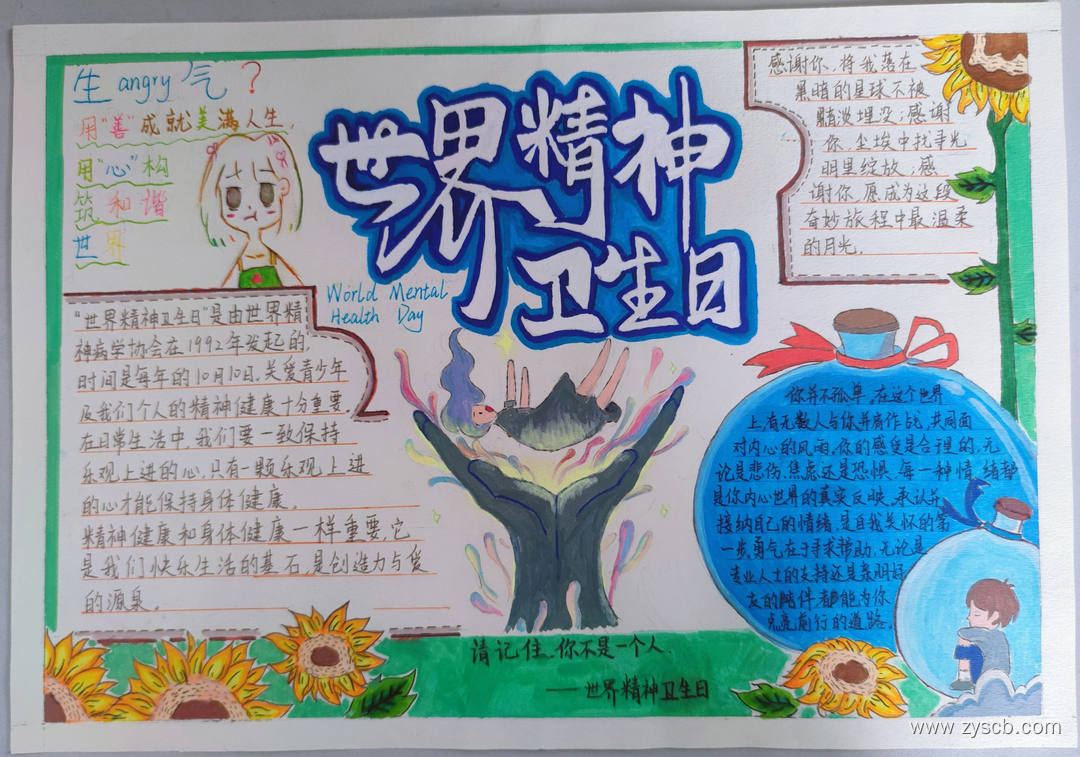 生 angry 气 ?
用"善"成就美满人生,
用"心"构
筑和谐
世界
世界精神
卫生日
World Mental
Health Day
感谢你,将我落在
黑暗的星球不被
黯淡埋没;感谢
你,尘埃中找寻光
明里绽放;感
谢你,愿成为这段
奇妙旅程中最温柔
的月光。
"世界精神卫生日"是由世界精
神病学协会在1992年发起的,
时间是每年的10月10日。关爱青少年
及我们个人的精神健康十分重要。
在日常生活中,我们要一致保持
乐观上进的心,只有一颗乐观上进
的心才能保持身体健康。
精神健康和身体健康一样重要,它
是我们快乐生活的基石,是创造力与爱
的源泉。
你并不孤单,在这个世界
上,有无数人与你并肩作战,共同面
对内心的风雨。你的感受是合理的,无
论是悲伤、焦虑还是恐惧,每一种情绪都
是你内心世界的真实反映。承认并
接纳自己的情绪,是自我关怀的第
一步,勇气在于寻求帮助,无论是
专业人士的支持还是亲朋好
友的陪伴都能为你
点亮前行的道路。
请记住,你不是一个人.
——世界精神卫生日
www.zyscb.com